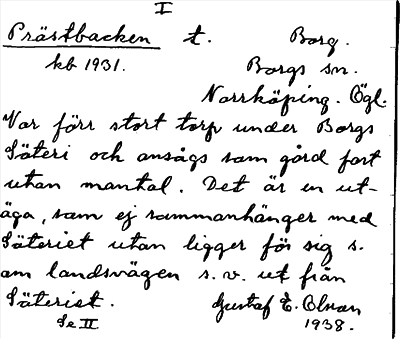 I
Prästbacken t. Borg.
kb 1931. Borgs sn.
Norrköping. Ögl.
Var förr stort torp under Borgs
Säteri och ansågs som gård fast
utan mantal. Det är en ut-
äga, som ej sammanhänger med
Säteriet utan ligger för sig s.
om landsvägen s.v. ut från
Säteriet. Gustaf E. Olson
Se II 1938.